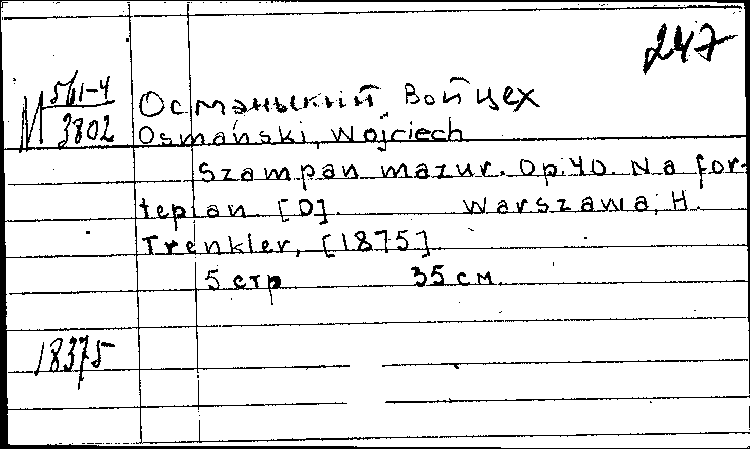 247
М 561-4
3802
Османьский, Войцех
Osmański, Wojciech
Szampan mazur. Op. 40. Na for-
tepian [D]. Warszawa, H.
Trenkler, [1875]
5 стр 35 см.
18375